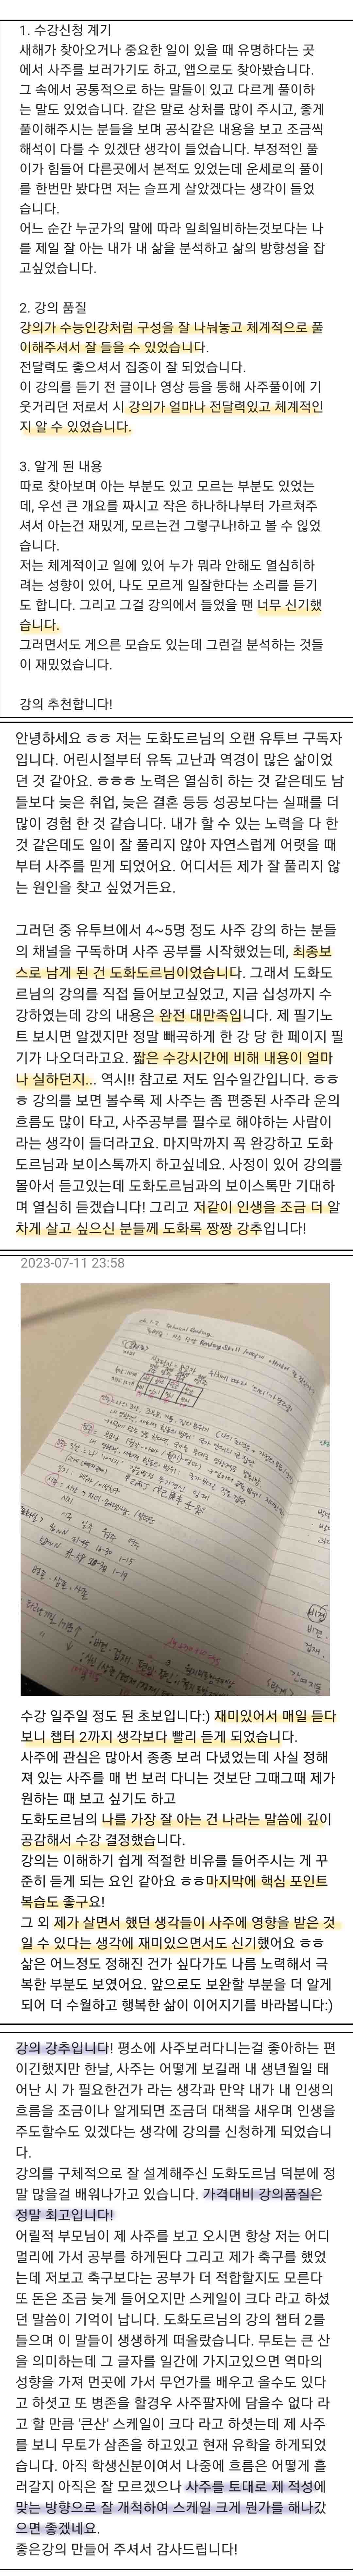 1. 수강신청 계기
새해가 찾아오거나 중요한 일이 있을 때 유명하다는 곳
에서 사주를 보러가기도 하고, 앱으로도 찾아봤습니다.
그 속에서 공통적으로 하는 말들이 있고 다르게 풀이하
는 말도 있었습니다. 같은 말로 상처를 많이 주시고, 좋게
풀이해주시는 분들을 보며 공식같은 내용을 보고 조금씩
해석이 다를 수 있겠단 생각이 들었습니다. 부정적인 풀
이가 힘들어 다른곳에서 본적도 있었는데 운세로의 풀이
를 한번만 봤다면 저는 슬프게 살았겠다는 생각이 들었
습니다.
어느 순간 누군가의 말에 따라 일희일비하는것보다는 나
를 제일 잘 아는 내가 내 삶을 분석하고 삶의 방향성을 잡
고싶었습니다.
2. 강의 품질
강의가 수능인강처럼 구성을 잘 나눠놓고 체계적으로 풀
이해주셔서 잘 들을 수 있었습니다.
전달력도 좋으셔서 집중이 잘 되었습니다.
이 강의를 듣기 전 글이나 영상 등을 통해 사주풀이에 기
웃거리던 저로서 시 강의가 얼마나 전달력있고 체계적인
지 알 수 있었습니다.
3. 알게 된 내용
따로 찾아보며 아는 부분도 있고 모르는 부분도 있었는
데, 우선 큰 개요를 짜시고 작은 하나하나부터 가르쳐주
셔서 아는건 재밌게, 모르는건 그렇구나!하고 볼 수 있었
습니다.
저는 체계적이고 일에 있어 누가 뭐라 안해도 열심히하
려는 성향이 있어, 나도 모르게 일잘한다는 소리를 듣기
도 합니다. 그리고 그걸 강의에서 들었을 땐 너무 신기했
습니다.
그러면서도 게으른 모습도 있는데 그런걸 분석하는 것들
이 재밌었습니다.
강의 추천합니다!
안녕하세요 ㅎㅎ 저는 도화도르님의 오랜 유투브 구독자
입니다. 어린시절부터 유독 고난과 역경이 많은 삶이었
던 것 같아요. ㅎㅎㅎ 노력은 열심히 하는 것 같은데도 남
들보다 늦은 취업, 늦은 결혼 등등 성공보다는 실패를 더
많이 경험 한 것 같습니다. 내가 할 수 있는 노력을 다 한
것 같은데도 일이 잘 풀리지 않아 자연스럽게 어렷을 때
부터 사주를 믿게 되었어요. 어디서든 제가 잘 풀리지 않
는 원인을 찾고 싶었거든요.
그러던 중 유투브에서 4~5명 정도 사주 강의 하는 분들
의 채널을 구독하며 사주 공부를 시작했었는데, 최종보
스로 남게 된 건 도화도르님이었습니다. 그래서 도화도
르님의 강의를 직접 들어보고싶었고, 지금 십성까지 수
강하였는데 강의 내용은 완전 대만족입니다. 제 필기노
트 보시면 알겠지만 정말 빼곡하게 한 강 당 한 페이지 필
기가 나오더라고요. 짧은 수강시간에 비해 내용이 얼마
나 실하던지... 역시!! 참고로 저도 임수일간입니다. ㅎㅎ
ㅎ 강의를 보면 볼수록 제 사주는 좀 편중된 사주라 운의
흐름도 많이 타고, 사주공부를 필수로 해야하는 사람이
라는 생각이 들더라고요. 마지막까지 꼭 완강하고 도화
도르님과 보이스톡까지 하고싶네요. 사정이 있어 강의를
몰아서 듣고있는데 도화도르님과의 보이스톡만 기대하
며 열심히 듣겠습니다! 그리고 저같이 인생을 조금 더 알
차게 살고 싶으신 분들께 도화록 짱짱 강추입니다!
2023-07-11 23:58
수강 일주일 정도 된 초보입니다:) 재미있어서 매일 듣다
보니 챕터 2까지 생각보다 빨리 듣게 되었습니다.
사주에 관심은 많아서 종종 보러 다녔었는데 사실 정해
져 있는 사주를 매 번 보러 다니는 것보단 그때그때 제가
원하는 때 보고 싶기도 하고
도화도르님의 나를 가장 잘 아는 건 나라는 말씀에 깊이
공감해서 수강 결정했습니다.
강의는 이해하기 쉽게 적절한 비유를 들어주시는 게 꾸
준히 듣게 되는 요인 같아요 ㅎㅎ마지막에 핵심 포인트
복습도 좋구요!
그 외 제가 살면서 했던 생각들이 사주에 영향을 받은 것
일 수 있다는 생각에 재미있으면서도 신기했어요 ㅎㅎ
삶은 어느정도 정해진 건가 싶다가도 나름 노력해서 극
복한 부분도 보였어요. 앞으로도 보완할 부분을 더 알게
되어 더 수월하고 행복한 삶이 이어지기를 바라봅니다:)
강의 강추입니다! 평소에 사주보러다니는걸 좋아하는 편
이긴했지만 한날, 사주는 어떻게 보길래 내 생년월일 태
어난 시 가 필요한건가 라는 생각과 만약 내가 내 인생의
흐름을 조금이나 알게되면 조금더 대책을 세우며 인생을
주도할수도 있겠다는 생각에 강의를 신청하게 되었습니
다.
강의를 구체적으로 잘 설계해주신 도화도르님 덕분에 정
말 많을걸 배워나가고 있습니다. 가격대비 강의품질은
정말 최고입니다!
어릴적 부모님이 제 사주를 보고 오시면 항상 저는 어디
멀리에 가서 공부를 하게된다 그리고 제가 축구를 했었
는데 저보고 축구보다는 공부가 더 적합할지도 모른다
또 돈은 조금 늦게 들어오지만 스케일이 크다 라고 하셨
던 말씀이 기억이 납니다. 도화도르님의 강의 챕터 2를
들으며 이 말들이 생생하게 떠올랐습니다. 무토는 큰 산
을 의미하는데 그 글자를 일간에 가지고있으면 역마의
성향을 가져 먼곳에 가서 무언가를 배우고 올수도 있다
고 하셧고 또 병존을 할경우 사주팔자에 담을수 없다 라
고 할 만큼 '큰산' 스케일이 크다 라고 하셧는데 제 사주
를 보니 무토가 삼존을 하고있고 현재 유학을 하게되었
습니다. 아직 학생신분이여서 나중에 흐름은 어떻게 흘
러갈지 아직은 잘 모르겠으나 사주를 토대로 제 적성에
맞는 방향으로 잘 개척하여 스케일 크게 뭔가를 해나갔
으면 좋겠네요.
좋은강의 만들어 주셔서 감사드립니다!